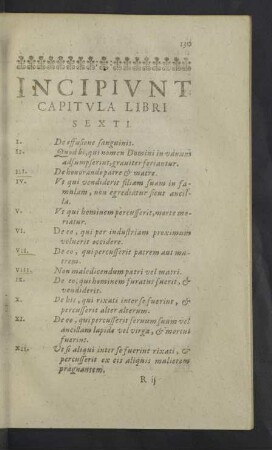 130
INCIPIVNT
CAPITVLA LIBRI
SEXTI.
I. De effusione sanguinis.
II. Quod hi, qui nomen Domini in vanum
adsumpserint, grauiter feriantur.
III. De honorando patre & matre.
IV. Vt qui vendiderit filiam suam in fa-
mulam, non egrediatur sicut ancil-
la.
V. Vt qui hominem percusserit, morte mo-
riatur.
VI. De eo, qui per industriam proximum
voluerit occidere.
VII. De eo, qui percusserit patrem aut ma-
trem.
VIII. Non maledicendum patri vel matri.
IX. De eo, qui hominem furatus fuerit, &
vendiderit.
X. De his, qui rixati inter se fuerint, &
percusserit alter alterum.
XI. De eo, qui percusserit seruum suum vel
ancillam lapide vel virga, & mortui
fuerint.
XII. Vt si aliqui inter se fuerint rixati, &
percusserit ex eis aliquis mulierem
prægnantem.
R ij